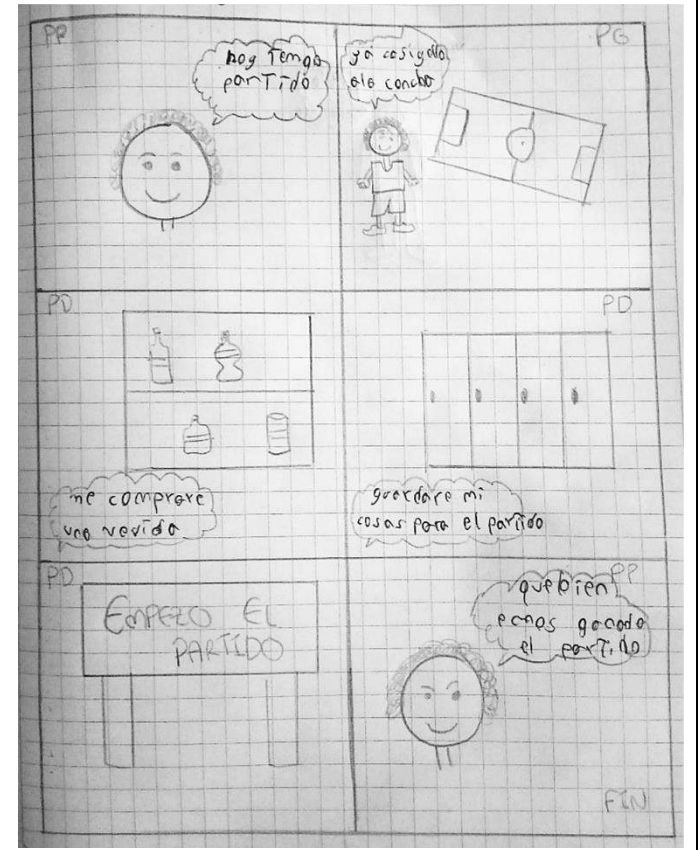 PP
hoy Tengo
parTido
PG
ya casi yello
ala concha
PD
me comprare
una vevida
PD
guardare mi
cosas para el partido
PD
EMPEZO EL
PARTIDO
PP
que bien
emos ganado
el parTido
FIN